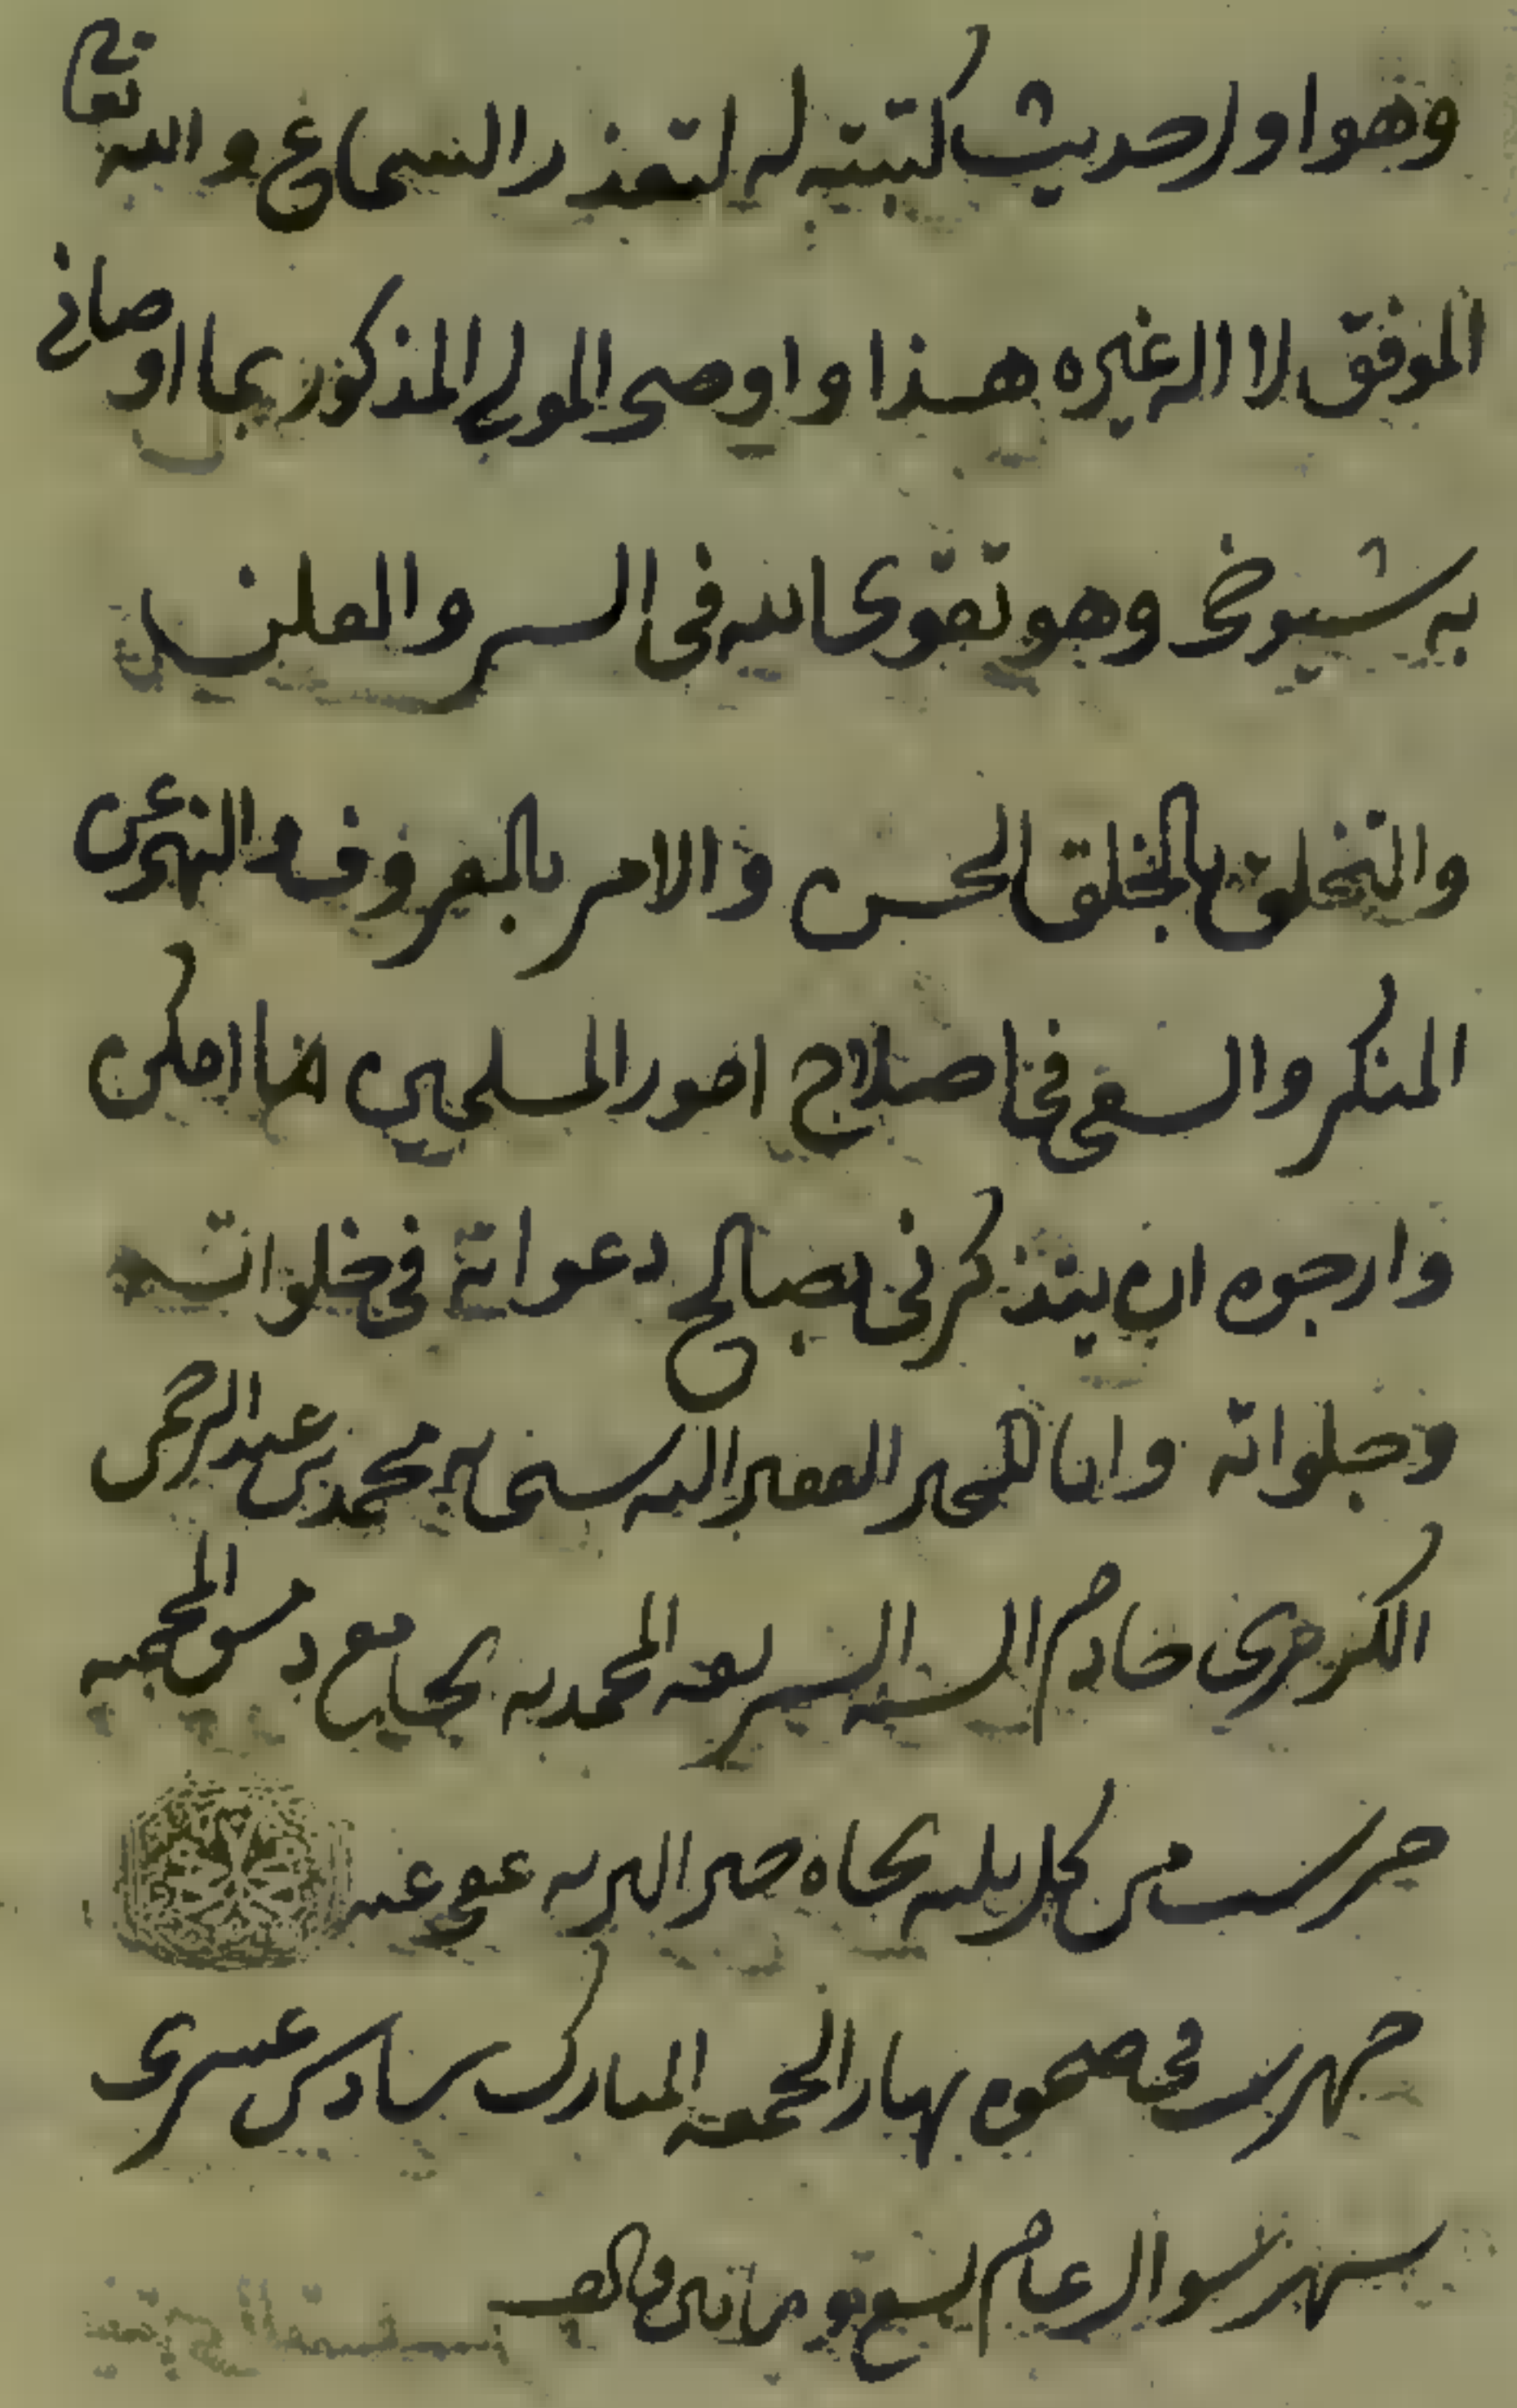 وهو اول حديث كتبته له لتعذر السماع والله تعالى
الموفق لا اله غيره هذا واوصى المولى المذكور بما اوصانى
به شيوخى وهو تقوى الله فى السر والعلن
والتخلق بالخلق الحسن والامر بالمعروف والنهى عن
المنكر والسعى فى اصلاح امور المسلمين ما امكن
وارجوه ان يتذكرنى بصالح دعواته فى خلواته
وجلواته وانا الفقير اليه سبحانه محمد بن عبد الرحمن
الكزبرى خادم السنه الشريفه المحمديه بجامع دمشق المحميه
حرست من كل بليه بجاه خير البريه عفى عنه
حررت فى ضحوه نهار الجمعه المبارك سادس عشرى
شهر شوال عام تسع ومائتين والف